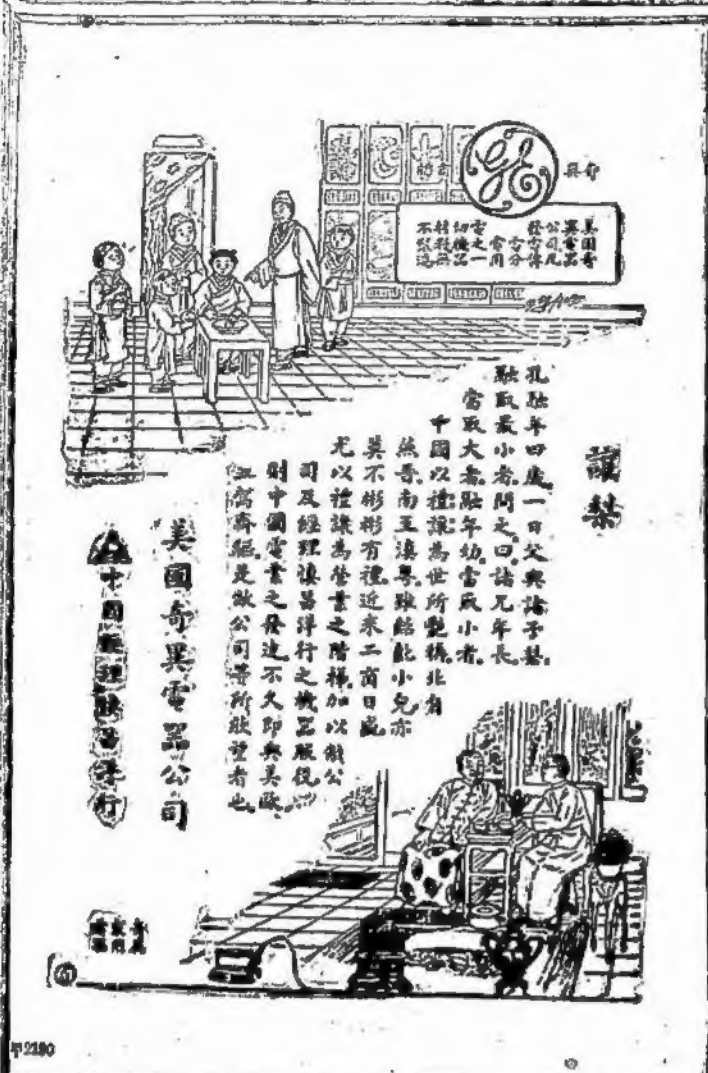 GE
美國奇
異電器
公司凡
發電傳
電分
電用
電之一
切機器
不製造
讓梨
孔融年四歲。一日父與諸子梨。
融取最小者。問之。曰。諸兄年長。
當取大者。融年幼。當取小者。
中國以禮讓為世所艷稱。北自
燕晉。南至滇粵。雖結齓小兒。亦
莫不彬彬有禮。近來工商日盛
尤以禮讓為營業之階梯。加以敝公
司及經理慎昌洋行之機器服役。
則中國電業之發達。不久即與美歐
並駕齊驅。是敝公司等所欣望者也。
美國奇異電器公司
中國經理慎昌洋行
2190